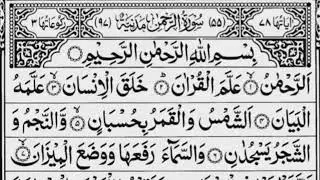 اٰيَاتُهَا ٧٨ (٥٥) سُوْرَةُ الرَّحْمٰنِ مَدَنِيَّةٌ (٩٧) رُكُوْعَاتُهَا ٣
بِسْمِ اللّٰهِ الرَّحْمٰنِ الرَّحِيْمِ
اَلرَّحْمٰنُ ۙ١ عَلَّمَ الْقُرْاٰنَ ؕ٢ خَلَقَ الْاِنْسَانَ ۙ٣ عَلَّمَهُ
الْبَيَانَ ٤ اَلشَّمْسُ وَالْقَمَرُ بِحُسْبَانٍ ٥ وَّالنَّجْمُ وَ
الشَّجَرُ يَسْجُدٰنِ ٦ وَالسَّمَآءَ رَفَعَهَا وَوَضَعَ الْمِيْزَانَ ۙ٧